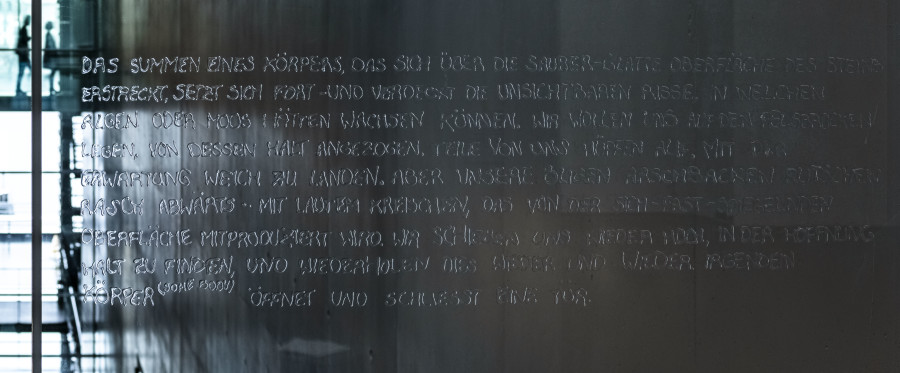 DAS SUMMEN EINES KÖRPERS, DAS SICH ÜBER DIE SAUBER-GLATTE OBERFLÄCHE DES STEINS
ERSTRECKT, SETZT SICH FORT - UND VERDECKT DIE UNSICHTBAREN RISSE, IN WELCHEN
ALGEN ODER MOOS HÄTTEN WACHSEN KÖNNEN. WIR WOLLEN UNS AN DEN
LEGEN, VON DESSEN HALT ANGEZOGEN. TEILE VON UNS HÜPFEN AUF, MIT DER
ERWARTUNG WEICH ZU LANDEN. ABER UNSERE ARSCHBACKEN RUTSCHEN
RASCH ABWÄRTS - MIT LAUTEM KREISCHEN, DAS VON DER
OBERFLÄCHE MITPRODUZIERT WIRD. WIR SCHIEBEN UNS WIEDER HOCH, IN DER HOFFNUNG
HALT ZU FINDEN, UND WIEDERHOLEN DIES WIEDER UND WIEDER. IRGENDEIN
KÖRPER (SOME BODY) ÖFFNET UND SCHLIESST EINE TÜR.